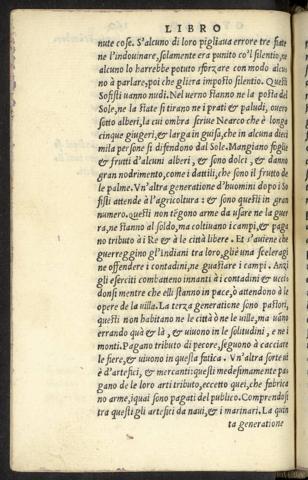 LIBRO
nute cose. S'alcuno di loro pigliaua errore tre fiate
ne l'indouinare, solamente era punito co'l silentio, ne
alcuno lo harrebbe potuto sforzare con modo alcu
no à parlare, poi che gliera imposto silentio. Questi
Sofisti uanno nudi. Nel uerno stanno ne la posta del
Sole, ne la state si tirano ne i prati & paludi, ouero
sotto alberi, la cui ombra scriue Nearco che è longa
cinque giugeri, & larga in guisa, che in alcuna dieci
mila persone si difendono dal Sole. Mangiano foglie
& frutti d'alcuni alberi, & sono dolci, & danno
gran nodrimento, come i dattili, che sono il frutto de
le palme. Vn'altra generatione d'huomini dopo i So
fisti attende à l'agricoltura: & sono questi in gran
numero. Questi non tēgono arme da usare ne la guer
ra, ne stanno al soldo, ma coltiuano i campi, & paga
no tributo à i Re & à le città libere. Et s'auiene che
guerreggino gl'Indiani tra loro, gliè una sceleragi
ne offendere i contadini, ne guastare i campi. Anzi
gli eserciti combatteno innanti à i contadini & ucci
donsi mentre che elli stanno in pace, ò attendono à le
opere de la uilla. La terza generatione sono pastori,
questi non habitano ne le città ò ne le uille, ma uāno
errando quà & là, & uiuono in le solitudini, e ne i
monti. Pagano tributo di pecore, seguono à cacciare
le fiere, & uiuono in questa fatica. Vn'altra sorte ui
è d'artefici, & mercanti: questi medesimamente pa
gano de le loro arti tributo, eccetto quei, che fabrica
no arme, i quai sono pagati del publico. Comprendosi
tra questi gli artefici da naui, & i marinari. La quin
ta generatione